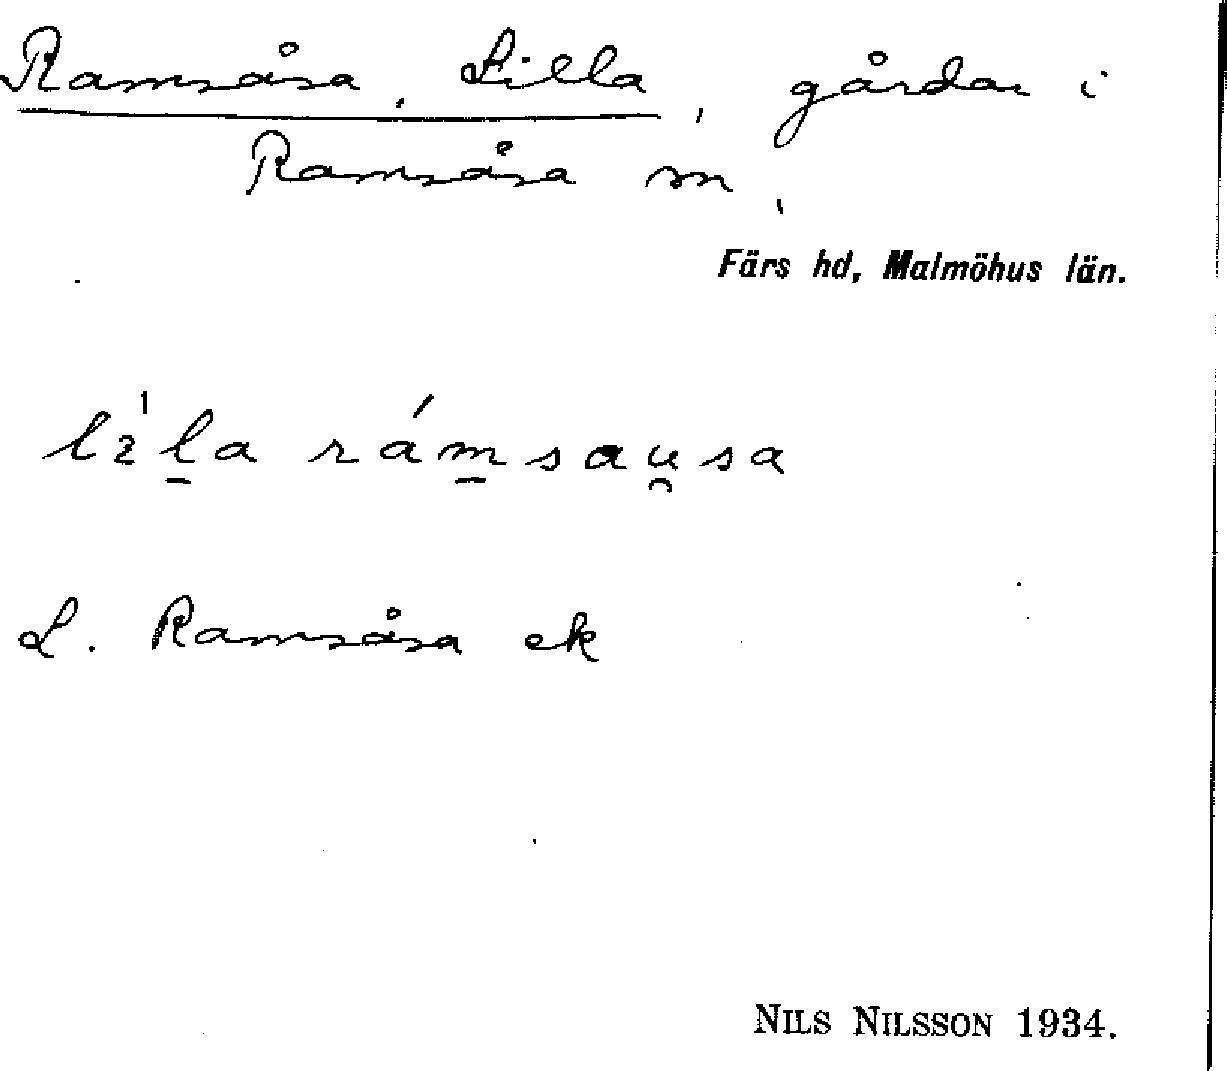 Ramsåsa, Lilla, gårdar i
Ramsåsa sn,
Färs hd, Malmöhus län.
lìl̠a rám̠sau̯sa
L. Ramsåsa ek
NILS NILSSON 1934.